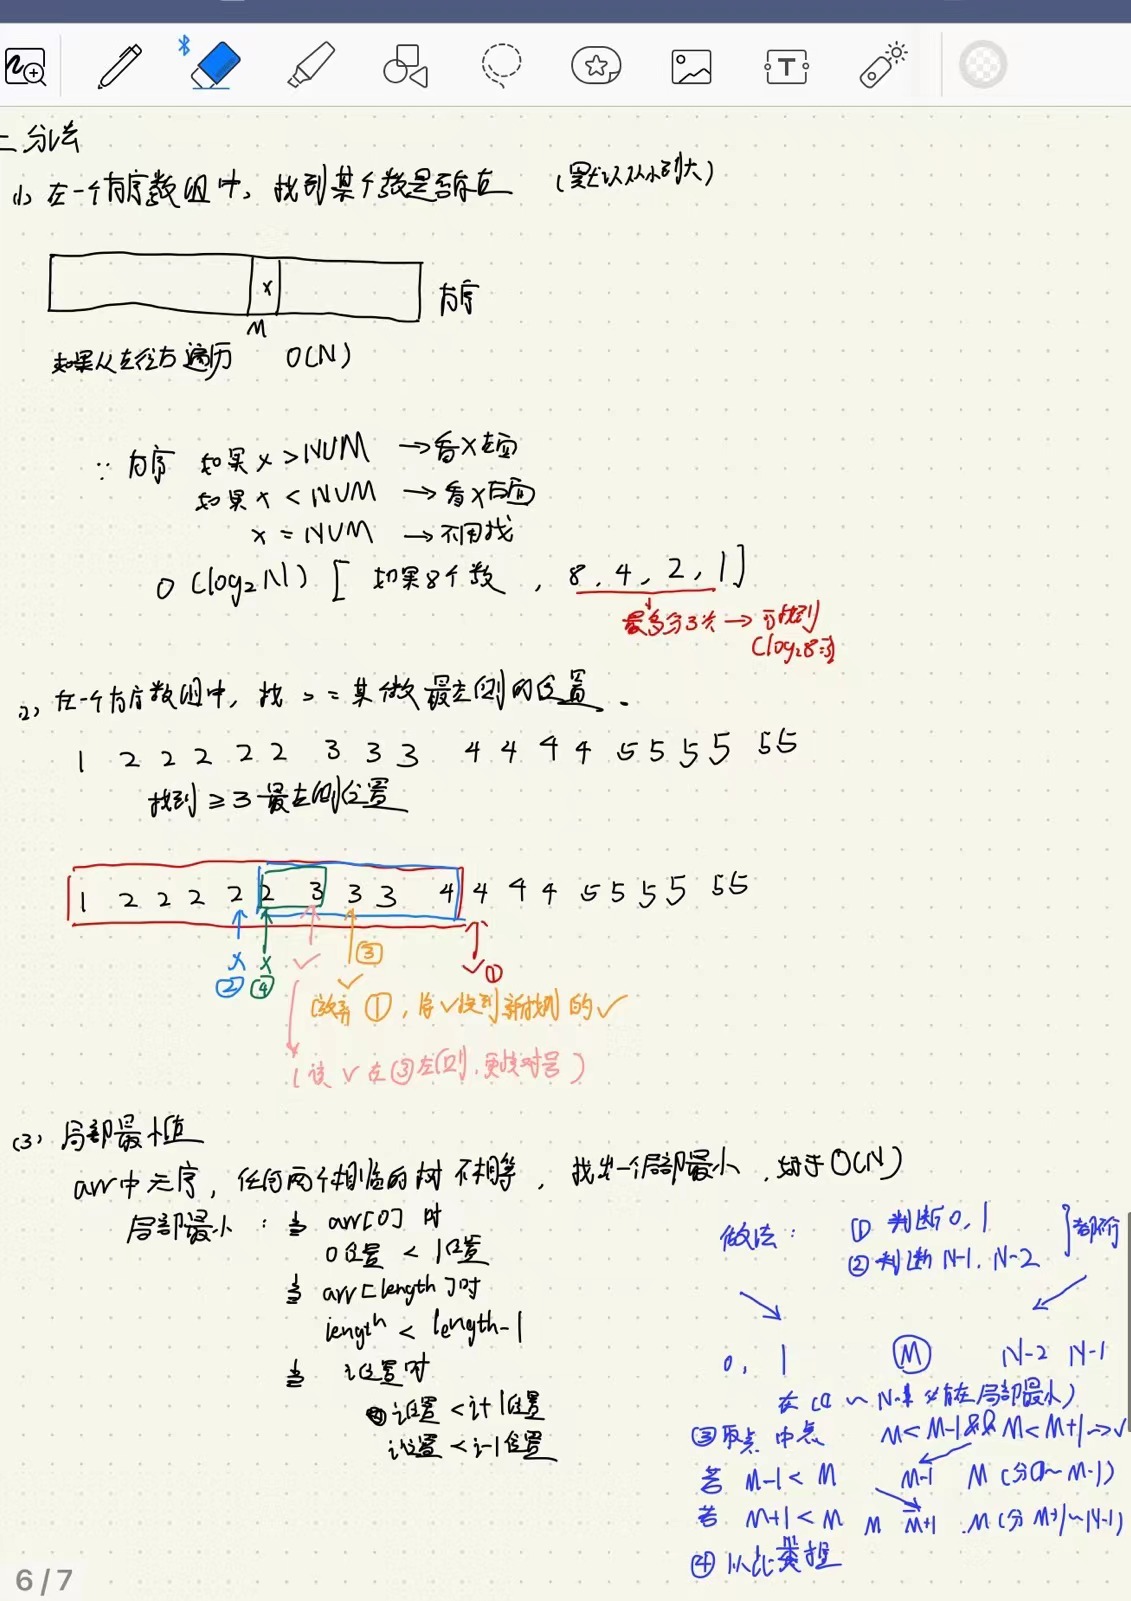 二分法
(1) 在一个有序数组中,找到某个数是否存在 (默认从小到大)
x
有序
M
如果从左往右遍历 O(N)
∵ 有序 如果 x > NUM → 看x左面
如果 x < NUM → 看x右面
x = NUM → 不用找
O (log₂N) [ 如果8个数 , 8, 4, 2, 1]
最多分3次 → 可找到
(log₂8=3)
(2) 在一个有序数组中,找 >= 某个数最左侧的位置.
1 2 2 2 2 2 3 3 3 4 4 4 4 5 5 5 5 5 5
找到 ≥ 3 最左侧位置
1 2 2 2 2 2 3 3 3 4 4 4 4 5 5 5 5 5 5
x x ✓ ③ ✓ ①
② ④ ✓
放弃 ①, 将✓ 到新找到的✓
(该✓在③左侧, 更 对号)
(3) 局部最小值
arr中无序, 任何两个相临的 不相等, 找出一个局部最小, 好于O(N)
局部最小 : 当 arr[0] 时
0位置 < 1位置
当 arr[length]时
length < length-1
当 i位置时
i位置 < i+1位置
i位置 < i-1位置
做法: ① 判断 0, 1
② 判断 N-1, N-2
} 都不行
0, 1 M N-2 N-1
在 (0 ~ N-1 必存在局部最小)
③ 取 中点 M < M-1 && M < M+1 → ✓
若 M-1 < M M-1 M (分0~M-1)
若 M+1 < M M M+1 M (分 M+1~N-1)
④ 以此类推
6/7